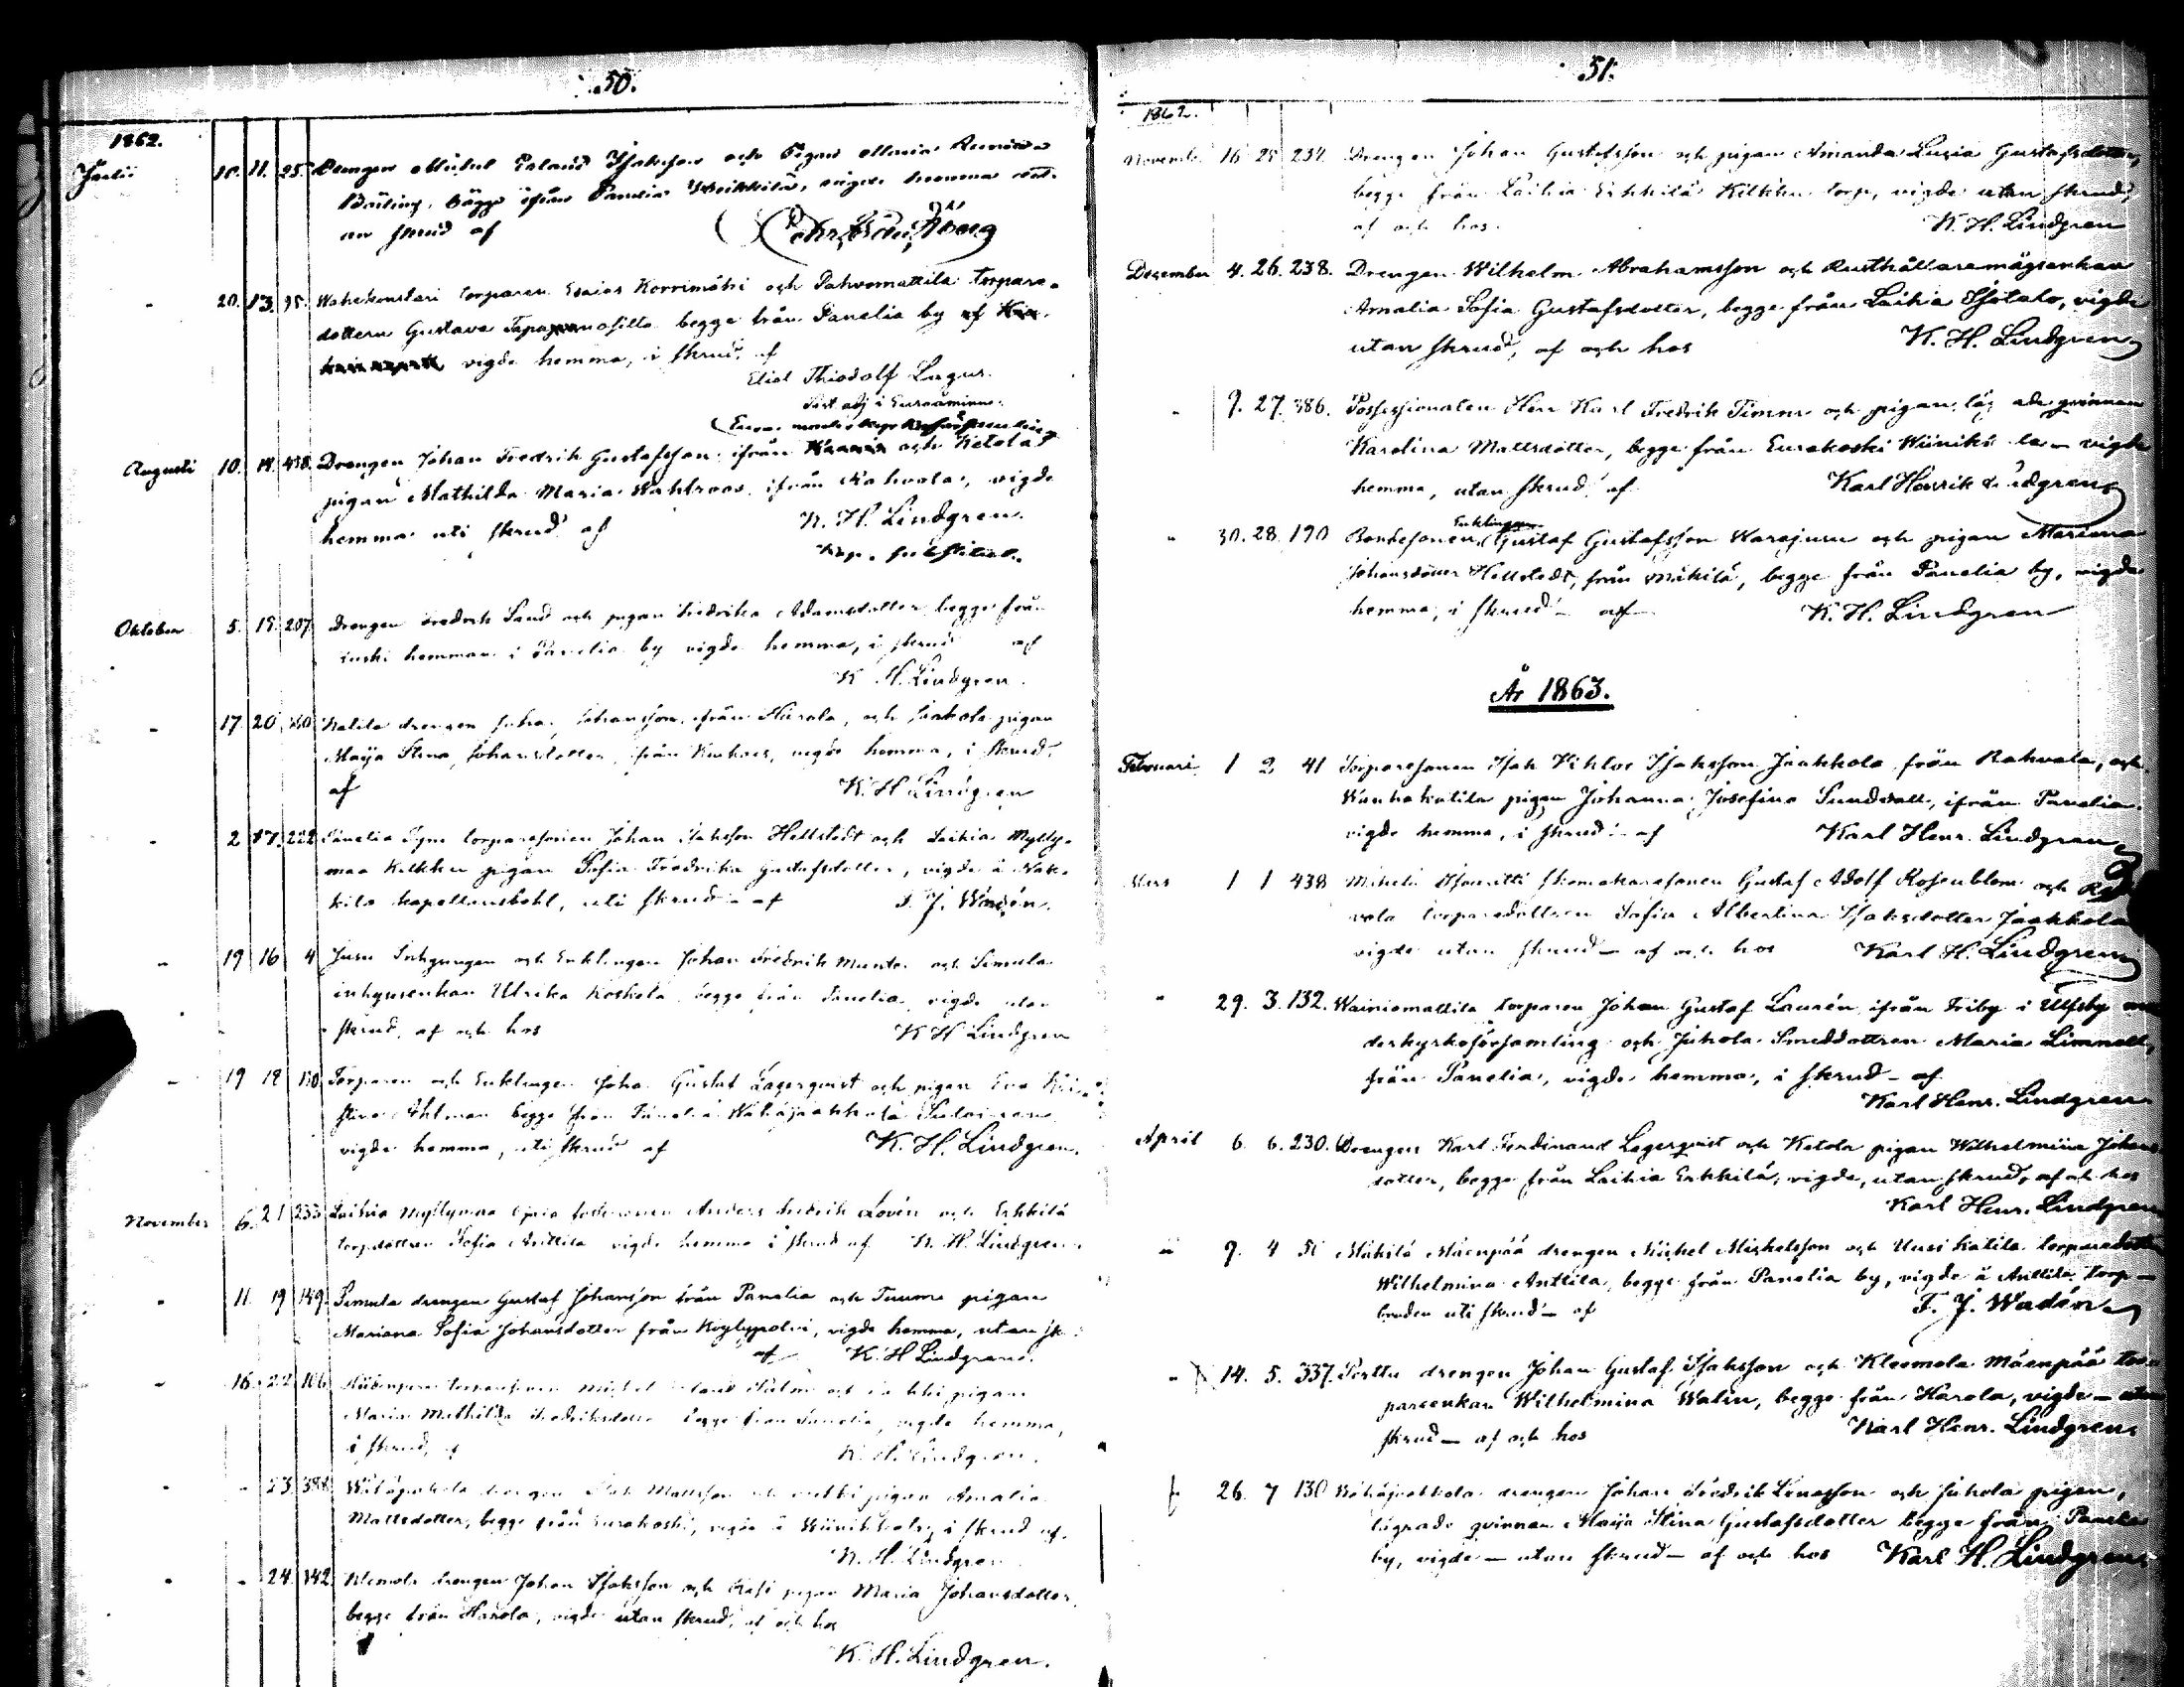 50.
1862.
Julii 10. 11. 25. Drengen Michel Erland Isaksson och Pigan Maria
bägge ifrån Panelia Heikkilä, vigde hemma
skrud af
20. 13. 95. torparen Esaias Korrimäki och Pahvomattila torpare-
dottern Gustava begge från Panelia by af
vigde hemma, i skrud, af
Thiodolf Lagus.
adj i Euraåminne.
Augusti 10. 14. 438. Drengen Johan Fredrik Gustafsson ifrån och Ketola
pigan Mathilda Maria Wahlroos, ifrån Rahvola, vigde
hemma uti skrud af K. H. Lindgren.
Kap. substitut.
Oktober 5. 15. 207 Drengen Fredrik Sand och pigan Fredrika Adamsdotter begge från
hemman i Panelia by vigde hemma, i skrud af
K. H. Lindgren.
17. 20 drengen Juha Johansson ifrån Harola, och pigan
Maija Stina Johansdotter, ifrån vigde hemma, i skrud
af K. H. Lindgren
2 17. 222 Panelia torparesonen Johan Isaksson Hellstedt och Laihia Mylly-
maa Kilkku pigan Sofia Fredrika Gustafsdotter, vigde å Nak-
kila kapellansbohl, uti skrud - af F. J. Wadén.
19 16 4 Jusu Inhysingen och Enklingen Johan Fredrik Munter och Simula
inhysenkan Ulrika Koskela begge från Panelia, vigde utan
skrud, af och hos K H Lindgren
19 18 130 Torparen och Enklingen Joha Gustaf Lagerqvist och pigan Eva Kri-
stina Ahlman begge från Panelia Wähäjaakkola
vigde hemma, uti skrud af K. H. Lindgren.
November 6. 21 233 Laihia Myllymaa Anders Fredrik Lovén och Erkkilä
torpdottren Sofia Anttila vigde hemma i skrud af K. H. Lindgren.
11. 19 149. Simula drengen Gustaf Johansson från Panelia och Tuuma pigan
Mariana Sofia Johansdotter från Köylypolvi, vigde hemma, utan sk
af K. H Lindgren.
16. 22 106 Michel och pigan
Maria Mathilda Fredriksdotter begge från Panelia, vigde hemma,
i skrud, af K. H. Lindgren.
23. 388 drengen Mattsson och pigan Amalia
Mattsdotter, begge från Eurakoski, vigde å i skrud af
K. H. Lindgren
24. 342 Klemola drengen Johan Isaksson och pigan Maria Johansdotter,
begge från Harola, vigde utan skrud, af och hos
K. H. Lindgren.
51.
1862.
November 16 25 234 Drengen Johan Gustafsson och pigan Amanda Lusia Gustafsdotter,
begge från Laihia Erkkilä Kilkku torp, vigde utan skrud,
af och hos. K. H. Lindgren
December 4. 26. 238. Drengen Wilhelm Abrahamsson och Rusthållaremågsenkan
Amalia Sofia Gustafsdotter, begge från Laihia Isotalo, vigde
utan skrud, af och hos K. H. Lindgren
9. 27. 386. Possessionaten Herr Karl Fredrik Timm och pigan, lägrade qvinnan
Karolina Mattsdotter, begge från Eurakoski Wiinikkala - vigde
hemma, utan skrud af Karl Henrik Lindgren
30. 28. 190 Bondesonen, Enklingen Gustaf Gustafsson Warajusu och pigan Mariana
Johansdotter Hellstedt, från Mäkilä, begge från Panelia by, vigde
hemma, i skrud - af - K. H. Lindgren
År 1863.
Februari 1 2 41 Torparesonen Isak Viktor Isaksson Jaakkola från Rahvola, och
Wanhakatila pigan Johanna Josefina Sundvall, ifrån Panelia.
vigde hemma, i skrud - af Karl Henr. Lindgren
Mars 1 1 438 Mikelä Isoaritti skomakaresonen Gustaf Adolf Rosenblom och Ra
vola torparedottren Sofia Albertina Isaksdotter Jaakkola
vigde utan skrud - af och hos Karl H. Lindgren
29. 3. 132. Wainiomattila torparen Johan Gustaf Laurén ifrån Friby i Ulfsby mo
derkyrkoförsamling och Juhola Smeddottren Maria Limnell,
från Panelia, vigde hemma, i skrud - af
Karl Henr. Lindgren
April 6 6. 230. Drengen Karl Ferdinand Lagerqvist och Ketola pigan Wilhelmina Johans
dotter, begge från Laihia Erkkilä, vigde, utan skrud, af och hos
Karl Henr. Lindgren
9. 4 51 Mäkilä Mäenpää drengen Michel Michelsson och Uusi Katila torparedottren
Wilhelmina Anttila, begge från Panelia by, vigde å Anttila torp -
uti skrud - af F. J. Wadén
14. 5. 337. Perttu drengen Johan Gustaf Isaksson och Kleemola Mäenpää tor
pareenkan Wilhelmina Walin, begge från Harola, vigde - utan
skrud - af och hos Karl Henr. Lindgren
26. 7 130 Wähäjaakkola drengen Johan Fredrik Linasson och Juhola pigan,
lägrade qvinnan Maija Stina Gustafsdotter begge från Panelia
by, vigde - utan skrud - af och hos Karl H. Lindgren